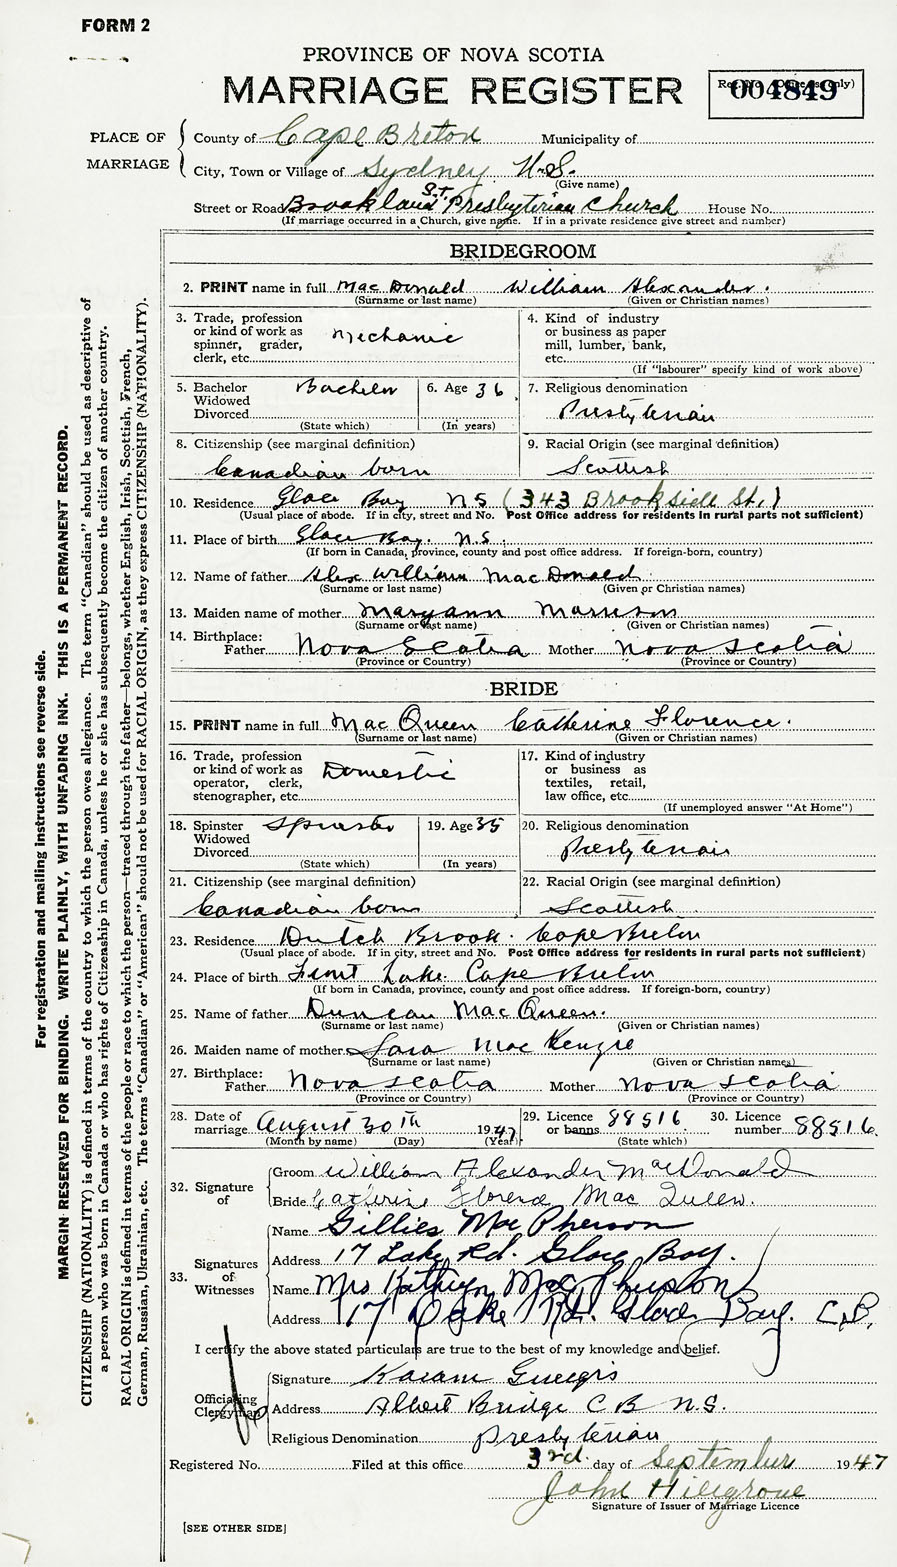 FORM 2
PROVINCE OF NOVA SCOTIA
MARRIAGE REGISTER
004849
PLACE OF MARRIAGE
County of Cape Breton Municipality of
City, Town or Village of Sydney N.S.
(Give name)
Street or Road Brookland St. Presbyterian Church House No.
(If marriage occurred in a Church, give name. If in a private residence give street and number)
BRIDEGROOM
2. PRINT name in full MacDonald William Alexander.
(Surname or last name) (Given or Christian names)
3. Trade, profession or kind of work as spinner, grader, clerk, etc. Mechanic
4. Kind of industry or business as paper mill, lumber, bank, etc.
(If "labourer" specify kind of work above)
5. Bachelor Widowed Divorced Bachelor
(State which)
6. Age 36
(In years)
7. Religious denomination
Presbyterian
8. Citizenship (see marginal definition)
Canadian born
9. Racial Origin (see marginal definition)
Scottish
10. Residence Glace Bay N S (343 Brookside St.)
(Usual place of abode. If in city, street and No. Post Office address for residents in rural parts not sufficient)
11. Place of birth Glace Bay. N.S.
(If born in Canada, province, county and post office address. If foreign-born, country)
12. Name of father Alex William MacDonald
(Surname or last name) (Given or Christian names)
13. Maiden name of mother Maryann Morrison
(Surname or last name) (Given or Christian names)
14. Birthplace:
Father Nova Scotia Mother Nova Scotia
(Province or Country) (Province or Country)
BRIDE
15. PRINT name in full MacQueen Catherine Florence.
(Surname or last name) (Given or Christian names)
16. Trade, profession or kind of work as operator, clerk, stenographer, etc. Domestic
17. Kind of industry or business as textiles, retail, law office, etc.
(If unemployed answer "At Home")
18. Spinster Widowed Divorced Spinster
(State which)
19. Age 35
(In years)
20. Religious denomination
Presbyterian
21. Citizenship (see marginal definition)
Canadian born
22. Racial Origin (see marginal definition)
Scottish
23. Residence Dutch Brook. Cape Breton
(Usual place of abode. If in city, street and No. Post Office address for residents in rural parts not sufficient)
24. Place of birth Front Lake. Cape Breton
(If born in Canada, province, county and post office address. If foreign-born, country)
25. Name of father Duncan MacQueen.
(Surname or last name) (Given or Christian names)
26. Maiden name of mother Sara MacKenzie
(Surname or last name) (Given or Christian names)
27. Birthplace:
Father Nova Scotia Mother Nova Scotia
(Province or Country) (Province or Country)
28. Date of marriage August 30th 1947
(Month by name) (Day) (Year)
29. Licence or banns 88516
(State which)
30. Licence number 88516.
32. Signature of
Groom William Alexander MacDonald
Bride Catherine Florence MacQueen.
33. Signatures of Witnesses
Name Gillies MacPherson
Address 17 Lake Rd. Glace Bay.
Name Mrs Kathryn MacPherson
Address 17 Lake Rd. Glace Bay. C.B.
I certify the above stated particulars are true to the best of my knowledge and belief.
Officiating Clergyman
Signature
Address Albert Bridge C B N.S.
Religious Denomination Presbyterian
Registered No. Filed at this office 3rd. day of September 1947
John
Signature of Issuer of Marriage Licence
[SEE OTHER SIDE]
For registration and mailing instructions see reverse side.
MARGIN RESERVED FOR BINDING. WRITE PLAINLY, WITH UNFADING INK. THIS IS A PERMANENT RECORD.
CITIZENSHIP (NATIONALITY) is defined in terms of the country to which the person owes allegiance. The term "Canadian" should be used as descriptive of
a person who was born in Canada or who has rights of Citizenship in Canada, unless he or she has subsequently become the citizen of another country.
RACIAL ORIGIN is defined in terms of the people or race to which the person—traced through the father—belongs, whether English, Irish, Scottish, French,
German, Russian, Ukrainian, etc. The terms "Canadian" or "American" should not be used for RACIAL ORIGIN, as they express CITIZENSHIP (NATIONALITY).